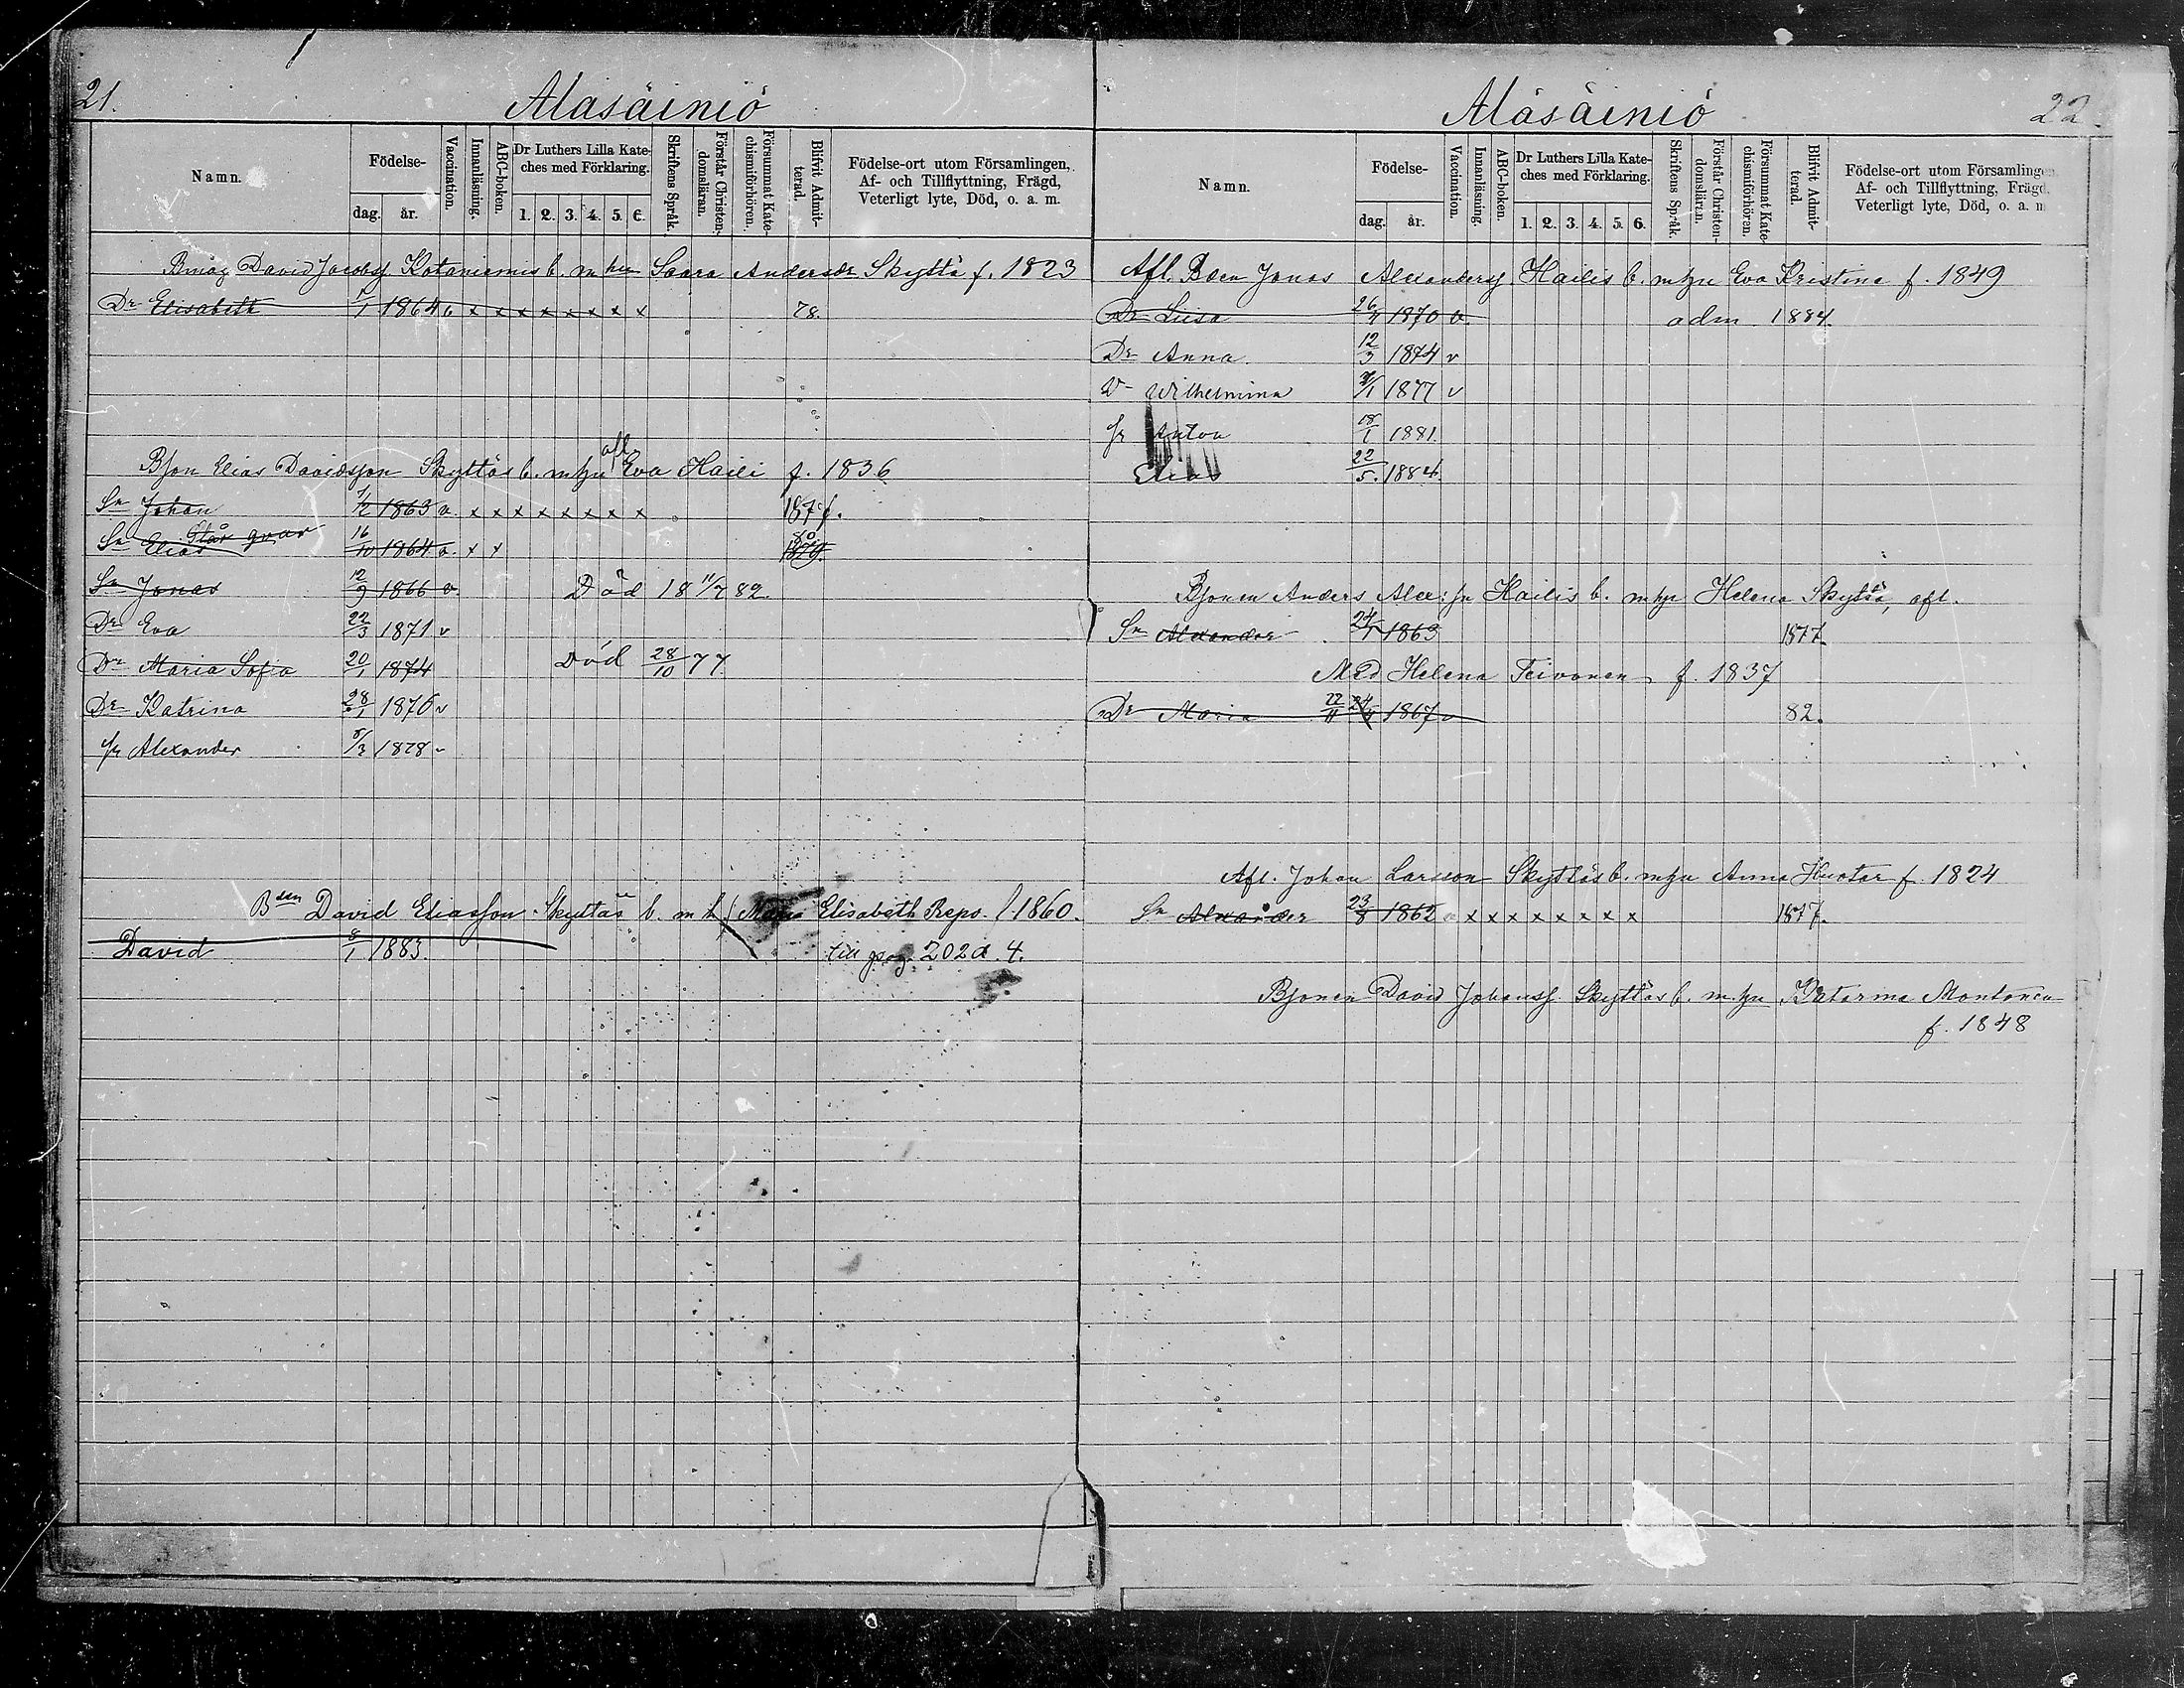 21.
Alasäiniö
Namn.
Födelse-
dag. år.
Vaccination.
Innanläsning.
ABC-boken.
Dr Luthers Lilla Kate-
ches med Förklaring.
1. 2. 3. 4. 5. 6.
Skriftens Språk.
Förstår Christen-
domsläran.
Försummat Kate-
chismiförhören.
Blifvit Admit-
terad.
Födelse-ort utom Församlingen,
Af- och Tillflyttning, Frägd,
Veterligt lyte, Död, o. a. m.
David Jacobsf Kotaniemis b. m hu Saara Andersdr Skyttä f. 1823
Dr Elisabeth 1/1 1864 v x x x x x x x x 78.
afl
Bson Elias Davidsson Skyttäs b. m hu Eva Haili f. 1836
Sn Johan 1/12 1863 v. x x x x x x x x 187f.
Står qvar
80
Sn Elias 16/10 1864 v. x x 1879.
Sn Jonas 12/9 1866 v Död 18 11/7 82.
Dr Eva 22/3 1871 v
Dr Maria Sofia 20/1 1874 Död 28/10 77.
Dr Katrina 28/1 1876 v
Sn Alexander 5/3 1878 v
Bden David Eliasson Skyttäs b. m h Maria Elisabeth Reps. f 1860.
David 8/1 1883. till pag. 202 d. 4.
Aläsäiniö
22.
Namn.
Födelse-
dag. år.
Vaccination.
Innanläsning.
ABC-boken.
Dr Luthers Lilla Kate-
ches med Förklaring.
1. 2. 3. 4. 5. 6.
Skriftens Språk.
Förstår Christen-
domsläran.
Försummat Kate-
chismiförhören.
Blifvit Admit-
terad.
Födelse-ort utom Församlingen
Af- och Tillflyttning, Frägd,
Veterligt lyte, Död, o. a. m
Afl. Bden Jonas Alexandersf Hailis b. m hu Eva Kristina f. 1849
Dr Lisa 26/4 1870 v. adm. 1884.
Dr Anna 12/3 1874 v
Dr Wilhelmina 1877 v
Sn Anton 18/1 1881.
Elias 22/5. 1884.
Bsonen Anders Alex:sn Hailis b. m hu Helena Skyttä, afl.
Sn Alexander 24/1 1863 1877.
Med Helena Teivonen f. 1837
Dr Maria 22/11 24/4 1867 v 82.
Afl. Johan Larsson Skyttäs b. m hu Anna Huotar f. 1824
Sn Alexander 23/8 1862 v x x x x x x x x 1877.
Bsonen David Johansf. Skyttäs b. m. hu Katarina Montonen
f. 1848